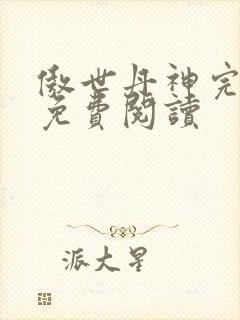 傲世丹神完
免費閱讀
派大星